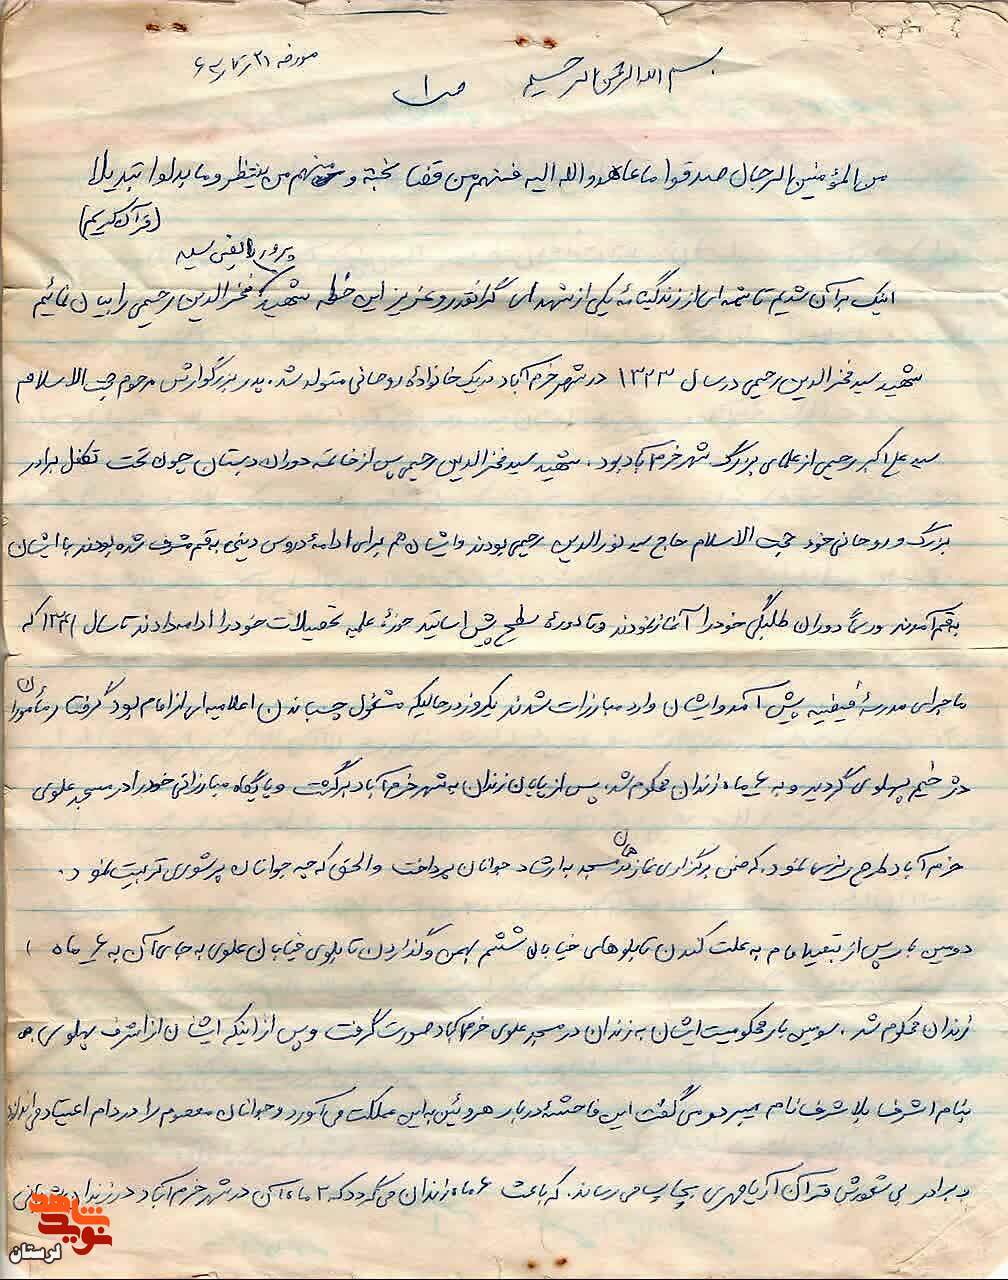 بسم الله الرحمن الرحیم
ص ۱
مورخه ۲۱
من المؤمنین الرجال صدقوا ما عاهدوا الله الیه فمنهم من قضا نحبه و منهم من ینتظر و ما بدلوا تبدیلا
(قرآن کریم)
اینک بر آن شدیم تا شمه ای از زندگینامه یکی از شهدای گرانقدر و عزیز این خطه شهید فخرالدین رحیمی را بیان نمائیم
شهید سید فخرالدین رحیمی در سال ۱۳۲۳ در شهر خرم آباد در یک خانوادهٔ روحانی متولد شد. پدر بزرگوارش مرحوم حجت الاسلام
سید علی اکبر رحیمی از علمای بزرگ شهر خرم آباد بود. شهید سید فخرالدین رحیمی پس از خاتمه دوران دبستان چون تحت تکفل برادر
بزرگ و روحانی خود حجت الاسلام حاج سید نورالدین رحیمی بودند و ایشان هم برای ادامهٔ دروس دینی به قم مشرف شده بودند با ایشان
به قم آمدند و رسماً دوران طلبگی خود را آغاز نمودند و تا دورهٔ سطح پیش اساتید حوزهٔ علمیه تحصیلات خود را ادامه دادند تا سال ۱۳۴۱ که
ماجرای مدرسهٔ فیضیه پیش آمد و ایشان وارد مبارزات شدند یکروز در حالیکه مشغول چسباندن اعلامیه ای از امام بود گرفتار مأموران
دژخیم پهلوی گردید و به ۶ ماه زندان محکوم شد. پس از پایان زندان به شهر خرم آباد برگشت و پایگاه مبارزاتی خود را در مسجد علوی
خرم آباد طرح ریزی نمود. که ضمن برگزاری نماز در همان مسجد به ارشاد جوانان پرداخت و الحق که چه جوانان پرشوری تربیت نمود.
دومین بار پس از تبعید امام به علت کندن تابلوهای خیابان ششم بهمن و گذاردن تابلوی خیابان علوی به جای آن به ۶ ماه
زندان محکوم شد. سومین بار محکومیت ایشان به زندان در مسجد علوی خرم آباد صورت گرفت و پس از اینکه ایشان از اشرف پهلوی به
بنام اشرف بلا شرف نام میبرد و می گفت این فاحشهٔ دربار هروئین به این مملکت می آورد و جوانان معصوم را در دام اعتیاد می اندازد
و برادر بی شعورش قرآن آریامهری بچاپ می رساند. که باعث ۶ ماه زندان می گردد که ۳ ماه آن در شهر خرم آباد در زندان
نوید شاهد
لرستان